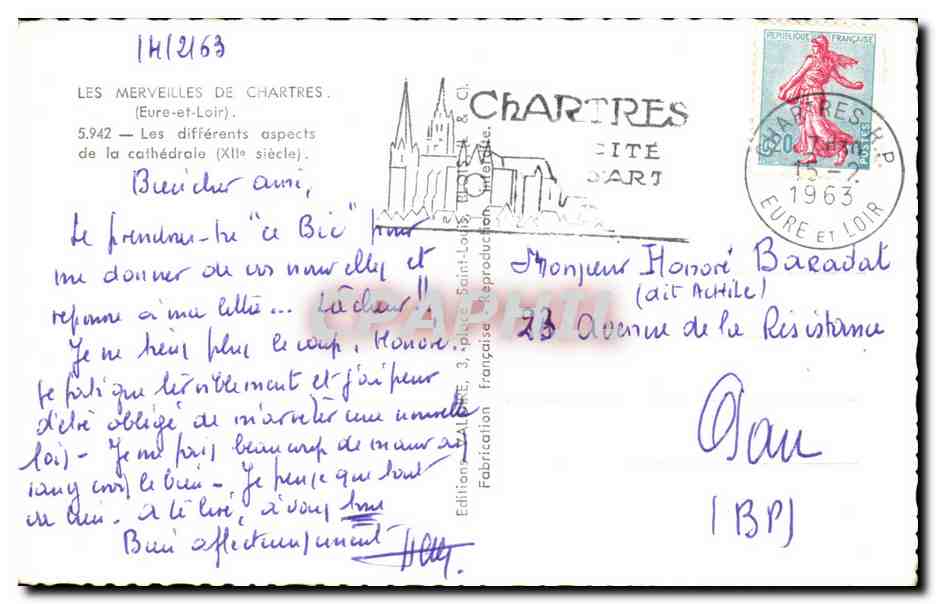 14/2/63
LES MERVEILLES DE CHARTRES.
(Eure-et-Loir).
5.942 — Les différents aspects
de la cathédrale (XIIe siècle).
Bien cher ami,
"ce Bic" pour
me donner de vos nouvelles et
réponse à ma lettre... Lâcheur!!
Je ne tiens plus le coup, Honoré.
fatigue terriblement et j'ai peur
d'être obligé de m'arrêter une nouvelle
fois - Je ne fais beaucoup de mauvais
sang le bien - Je pense que tout
va bien. à te lire, à vous tous
Bien affectueusement
Editions VALOIRE, 3, place Saint-Louis, BLOIS (L. & C.).
Fabrication Française - Reproduction Interdite.
ChARTRES
CITÉ
D'ART
REPUBLIQUE FRANÇAISE
0,20
POSTES
CHARTRES R.P.
15-2
1963
EURE ET LOIR
Monsieur Honoré Baradat
(dit Achile)
23 Avenue de la Résistance
Pau
(BP)
CPAPHIL